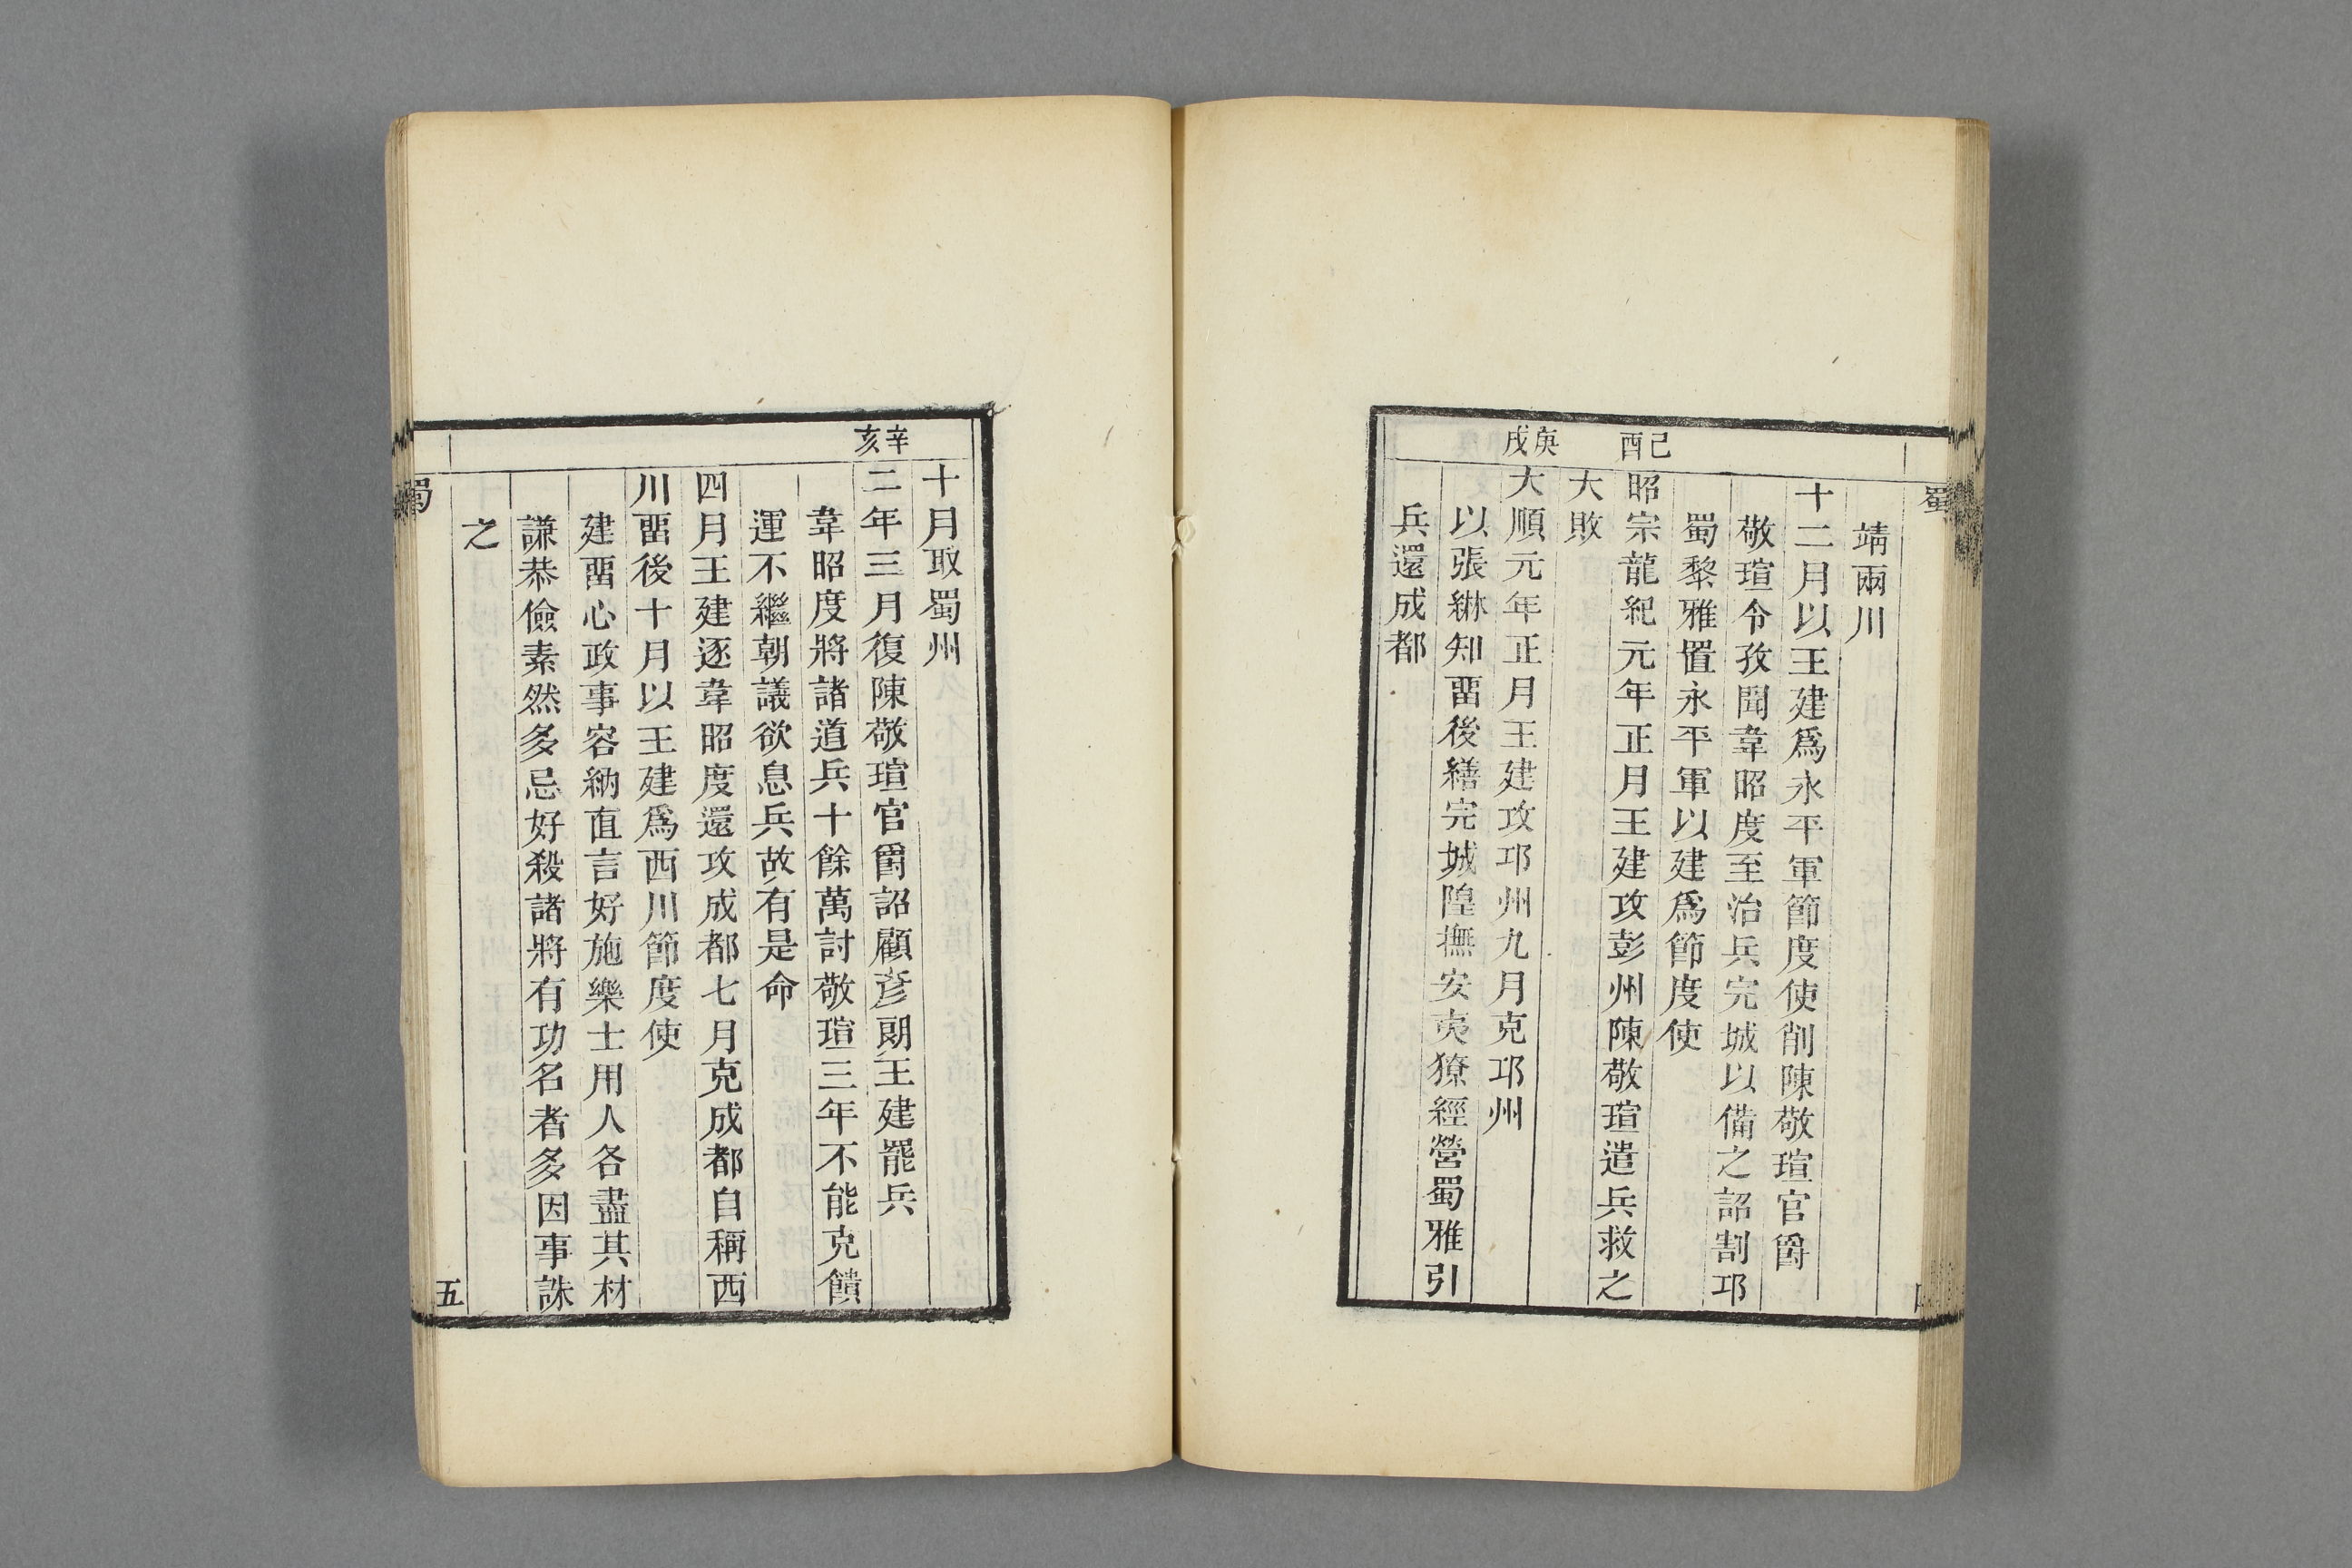 蜀
靖兩川
十二月以王建爲永平軍節度使削陳敬瑄官爵
敬瑄令孜聞韋昭度至治兵完城以備之詔割邛
蜀黎雅置永平軍以建爲節度使
己酉
昭宗龍紀元年正月王建攻彭州陳敬瑄遣兵救之
大敗
庚戌
大順元年正月王建攻邛州九月克邛州
以張綝知畱後繕完城隍撫安夷獠經營蜀雅引
兵還成都
十月取蜀州
辛亥
二年三月復陳敬瑄官爵詔顧彥朗王建罷兵
韋昭度將諸道兵十餘萬討敬瑄三年不能克饋
運不繼朝議欲息兵故有是命
四月王建逐韋昭度還攻成都七月克成都自稱西
川畱後十月以王建爲西川節度使
建畱心政事容納直言好施樂士用人各盡其材
謙恭儉素然多忌好殺諸將有功名者多因事誅
之
蜀
五